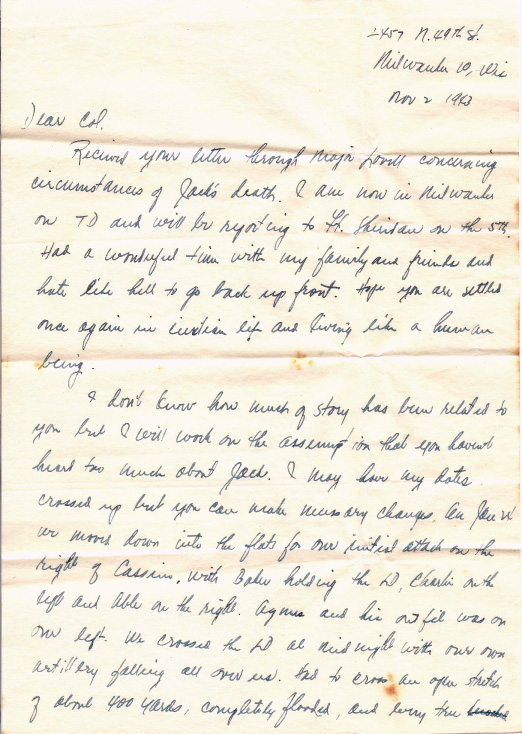 2457 N. 49th St.
Milwaukee 10, Wis
Nov 2 1943
Dear Col.
Received your letter through Major Lovell concerning
circumstances of Jack's death. I am now in Milwaukee
on TD and will be reporting to Ft. Sheridan on the 5th.
Had a wonderful time with my family and friends and
hate like hell to go back up front. Hope you are settled
once again in civilian life and living like a human
being.
I don't know how much of story has been related to
you but I will work on the assumption that you haven't
heard too much about Jack. I may have my dates
crossed up but you can make necessary changes. On Jan
we moved down into the flats for our initial attack on the
right of Cassino, with Baker holding the LD, Charlie on the
left and Able on the right. and his outfit was on
our left. We crossed the LD at midnight with our own
artillery falling all over us. Had to cross an open stretch
of about 400 yards, completely flooded, and every tree